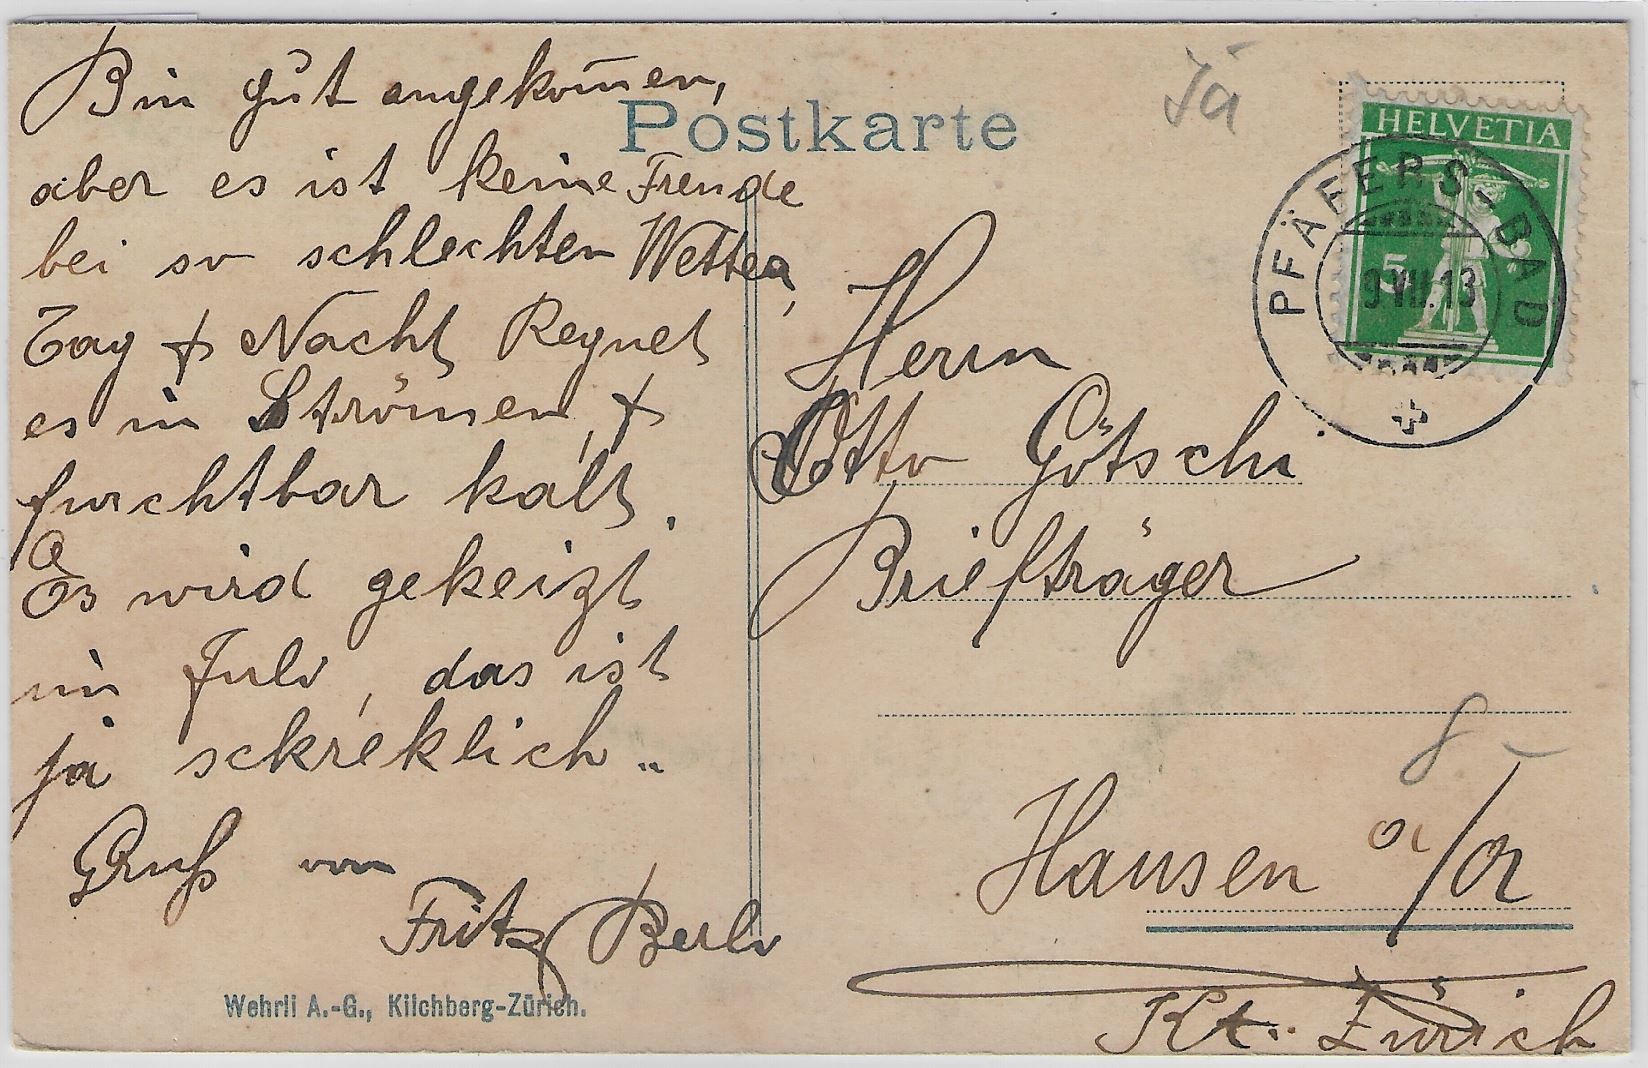 Bin gut angekom̅en,
aber es ist keine Freude
bei so schlechten Wetter,
Tag & Nacht Regnet
es in Strömen, &
furchtbar kalt.
Es wird gekeizt
im Juli, das ist
ja sckreklich..
Gruß von
Fritz
Wehrli A.-G., Kilchberg-Zürich.
Postkarte
Jä
HELVETIA
5
PFÄFERS-BAD
9 VII.13
Herrn
Otto Götschi
Briefträger
8 –
Hausen a/A
Kt. Zürich